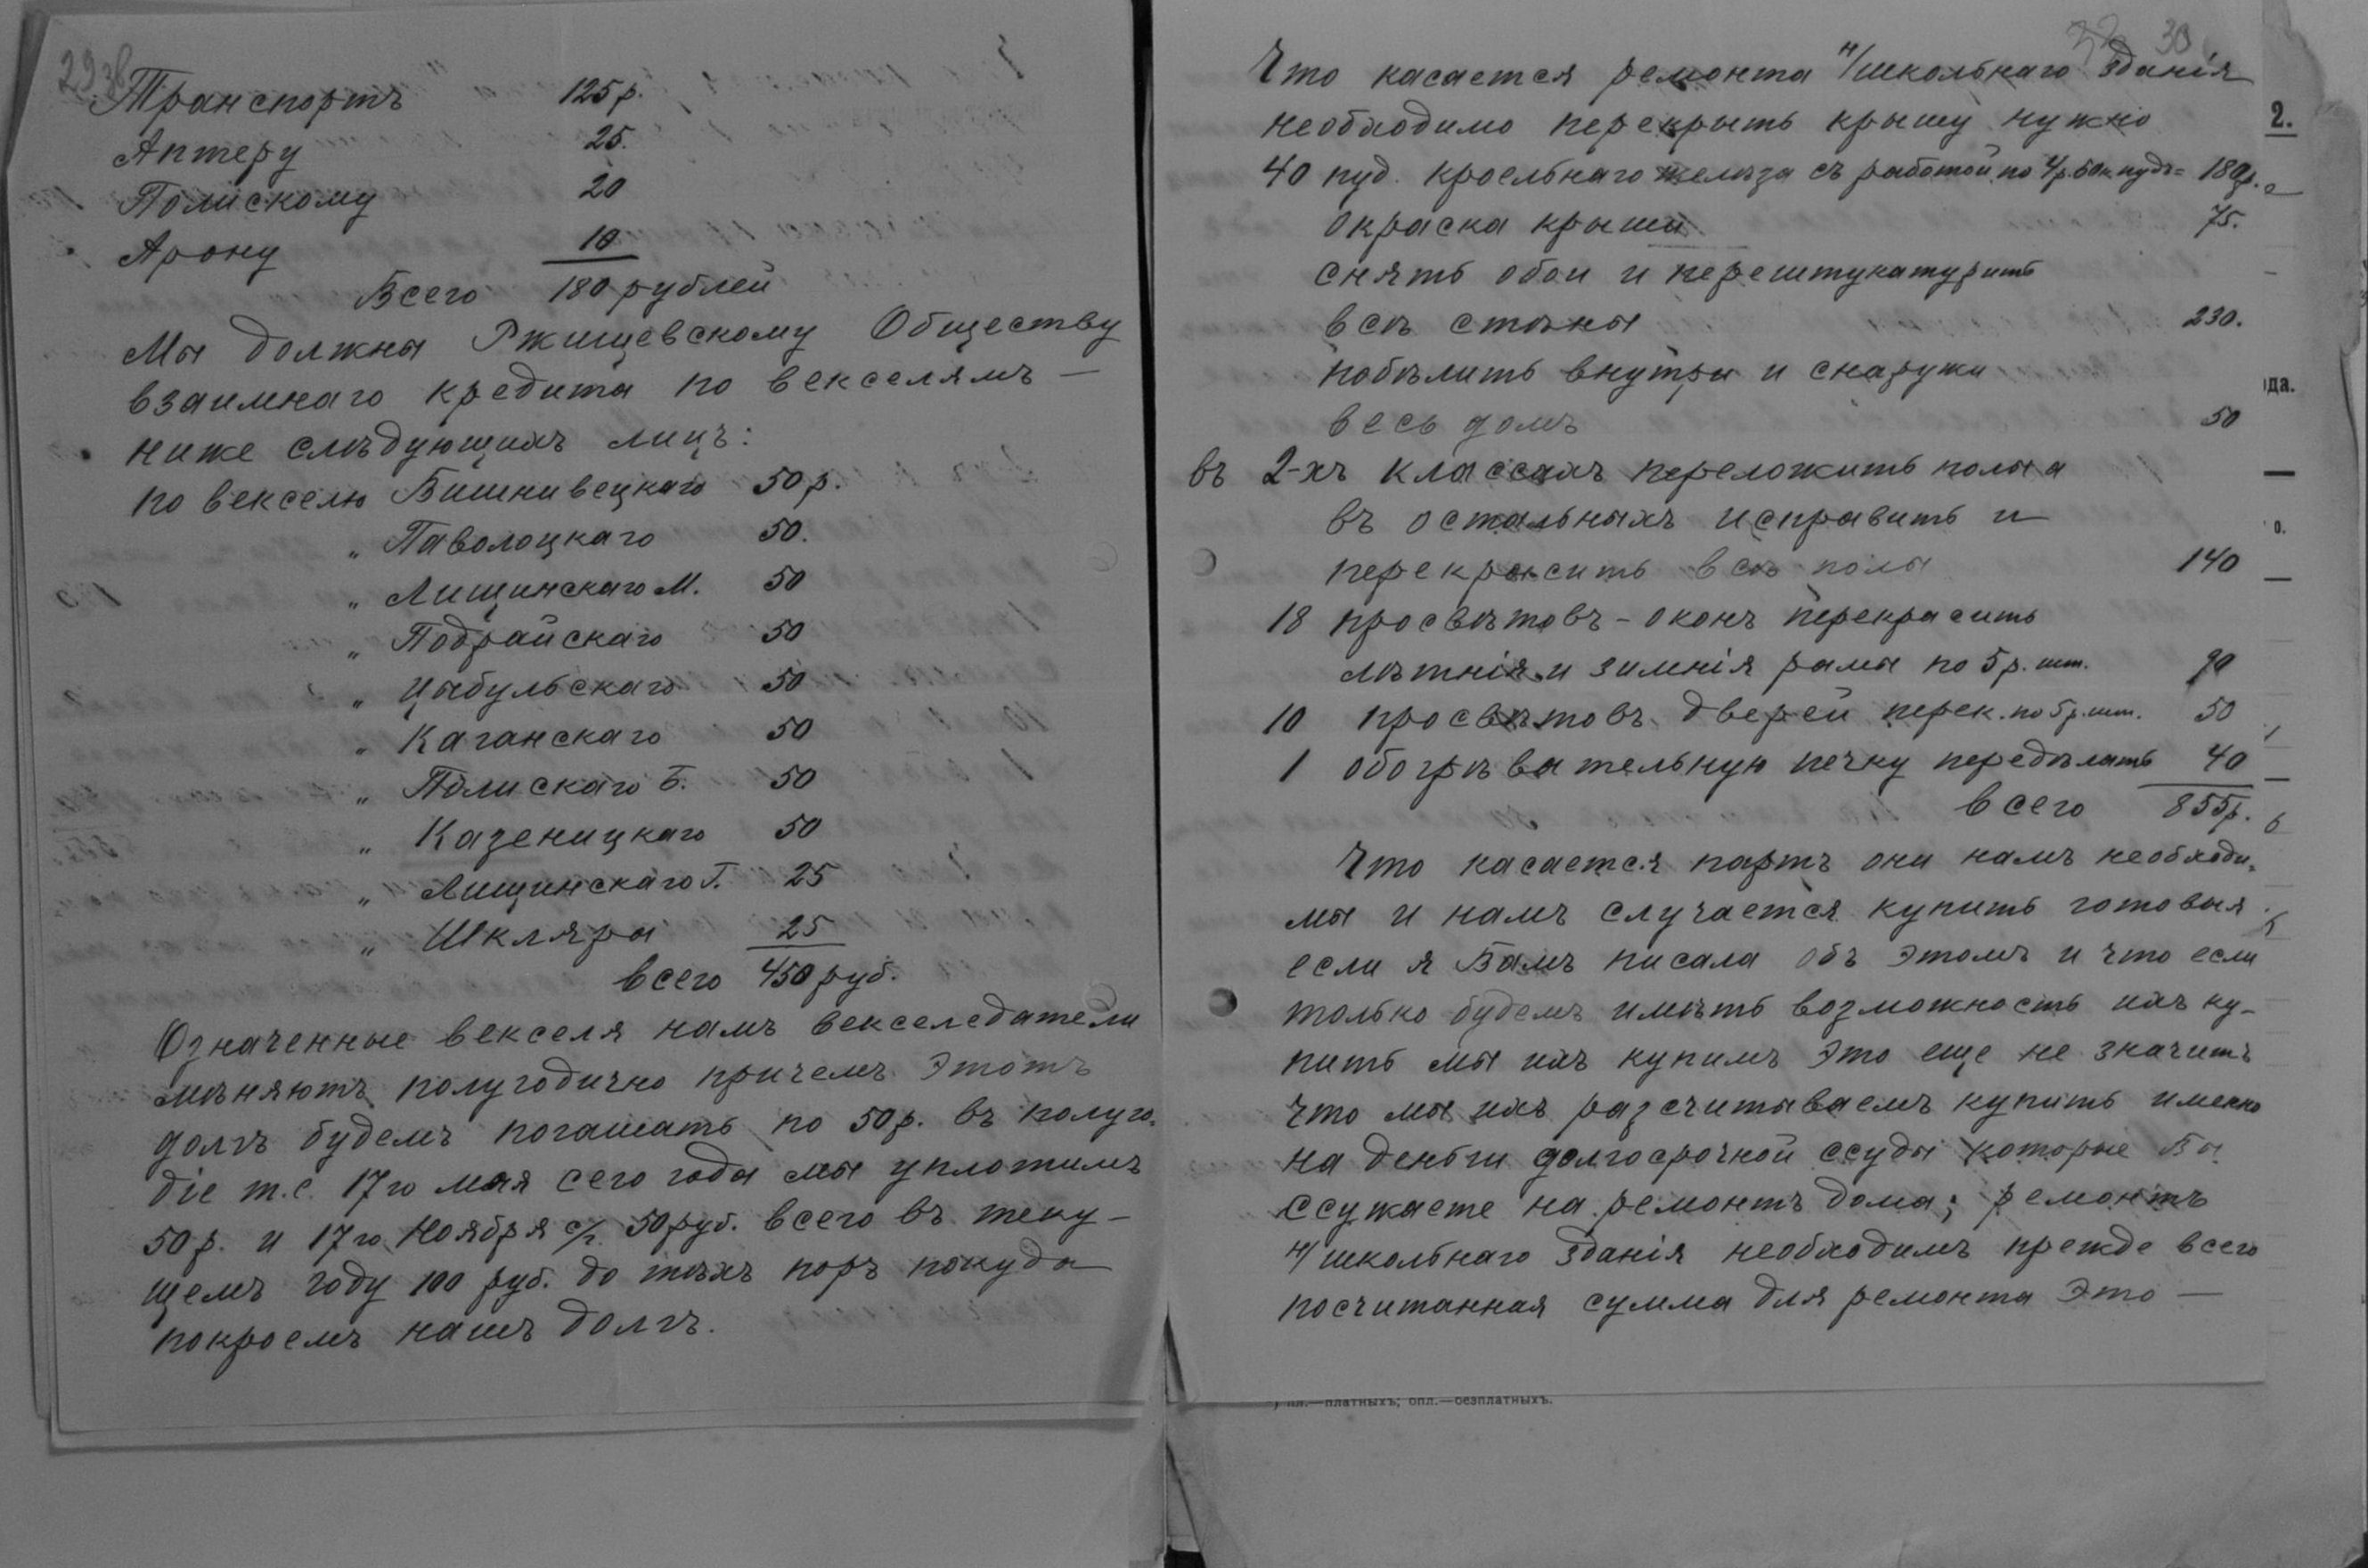 Транспортъ 125 р.
Аптеру 25.
Полискому 20
Арону 10
Всего 180 рублей
Мы должны Ржищевскому Обществу
взаимнаго кредита по векселямъ —
ниже слѣдующихъ лицъ:
по векселю Вишнивецкаго 50 р.
" Паволоцкаго 50.
" Лищинскаго М. 50
" Подрайскаго 50
" Цыбульскаго 50
" Каганскаго 50
" Полискаго Б. 50
" Казеницкаго 50
" Лищинскаго Г. 25
" Шкляра 25
всего 450 руб.
Означенные векселя намъ векселедатели
мѣняютъ полугодично причемъ этотъ
долгъ будемъ погашать по 50 р. въ полуго-
діе т.е. 17го мая сего года мы уплотимъ
50 р. и 17го Ноября с/г. 50 руб. всего въ теку-
щемъ году 100 руб. до тѣхъ поръ покуда
покроемъ нашъ долгъ.
30
Что касается ремонта н/школьнаго зданія
необходимо перекрыть крышу нужно
40 пуд. кроельнаго желѣза съ работой по 4 р. 50 к. пудъ = 180 р.
окраска крыши 75.
снять обои и перештукатурить
всѣ стѣны 230.
побѣлить внутри и снаружи
весь домъ 50
въ 2-хъ классахъ переложить полы а
въ остальныхъ исправить и
перекрасить всѣ полы 140
18 просвѣтовъ - оконъ перекрасить
лѣтнія и зимнія рамы по 5 р. шт. 90
10 просвѣтовъ дверей перек. по 5 р. шт. 50
1 обогрѣвательную печку передѣлать 40
всего 855 р.
Что касается партъ они намъ необходи-
мы и намъ случается купить готовыя
если я Вамъ писала объ этомъ и что если
только будемъ имѣть возможность ихъ ку-
пить мы ихъ купимъ это еще не значитъ
что мы ихъ разсчитываемъ купить именно
на деньги долгосрочной ссуды которые Вы
ссужаете на ремонтъ дома; ремонтъ
н/школьнаго зданія необходимъ прежде всего
посчитанная сумма для ремонта это —
2.
да.
о.
пл.—платныхъ; опл.—безплатныхъ.